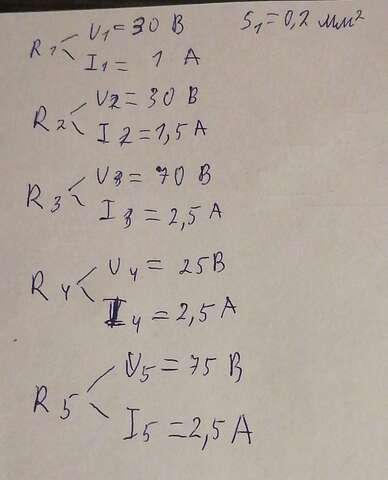 R1 U1 = 30 В S1 = 0,2 мм²
I1 = 1 А
R2 U2 = 30 В
I2 = 1,5 А
R3 U3 = 70 В
I3 = 2,5 А
R4 U4 = 25 В
I4 = 2,5 А
R5 U5 = 75 В
I5 = 2,5 А